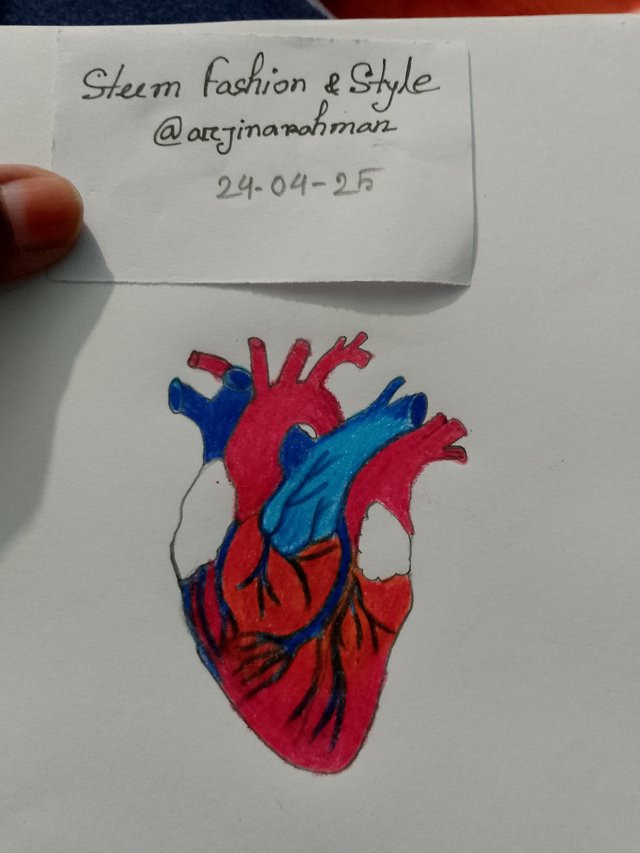 Steem Fashion & Style
@arjinarahman
24-04-25